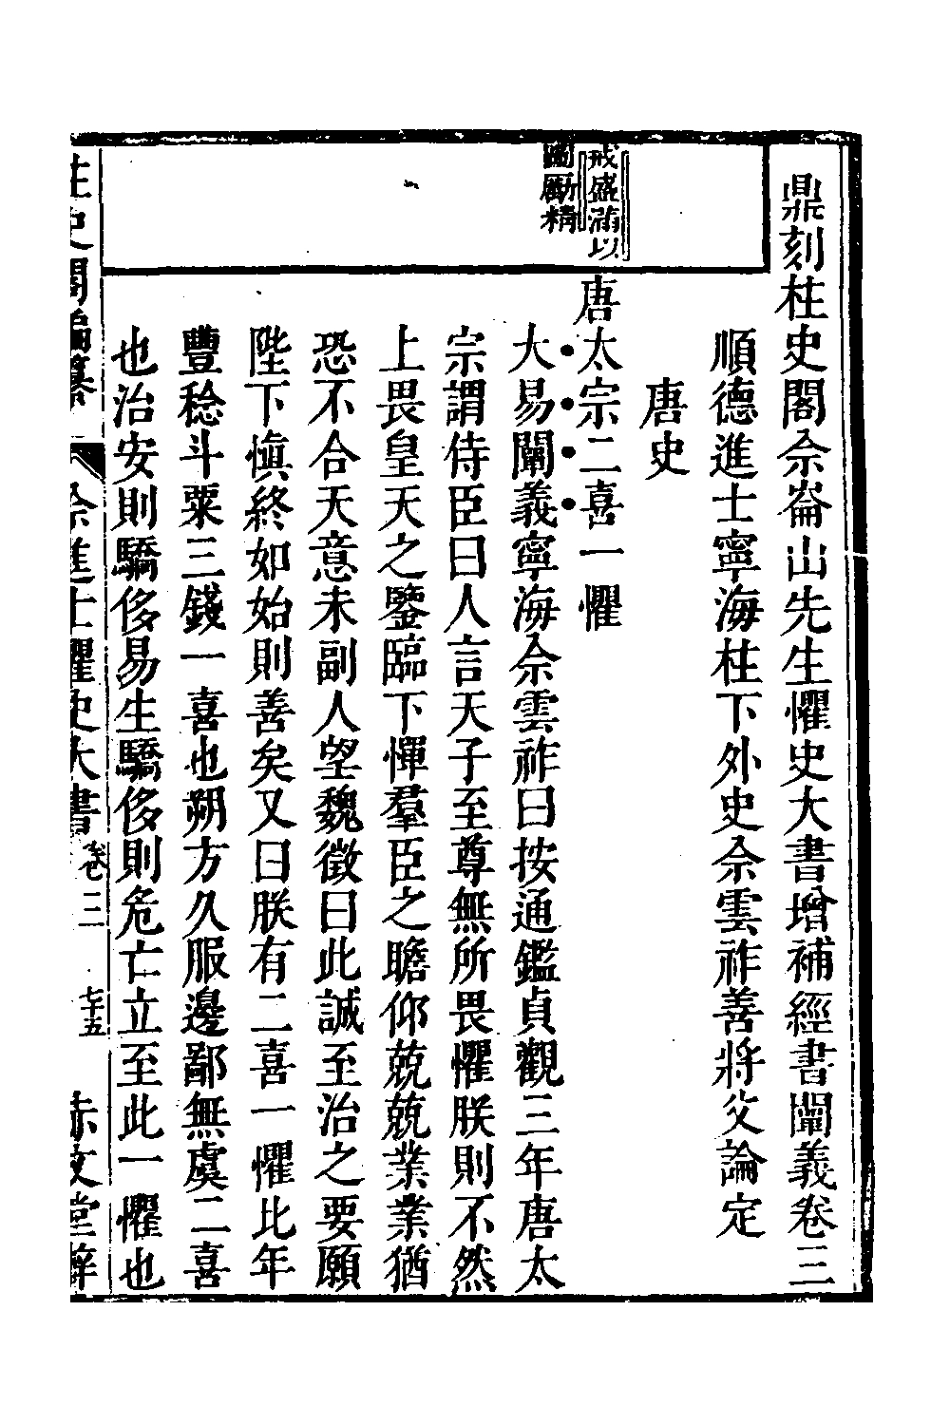 鼎刻柱史閣佘崙山先生懼史大書增補經書闡義卷三
順德進士寧海柱下外史佘雲祚善將父論定
唐史
戒盛滿以
圖厲精
唐太宗二喜一懼
大易闡義寧海佘雲祚曰按通鑑貞觀三年唐太
宗謂侍臣曰人言天子至尊無所畏懼朕則不然
上畏皇天之鑒臨下憚羣臣之瞻仰兢兢業業猶
恐不合天意未副人望魏徵曰此誠至治之要願
陛下愼終如始則善矣又曰朕有二喜一懼比年
豐稔斗粟三錢一喜也朔方久服邊鄙無虞二喜
也治安則驕侈易生驕侈則危亡立至此一懼也
柱史閣編纂 佘進士懼史大書卷三 七十五 赤文堂梓